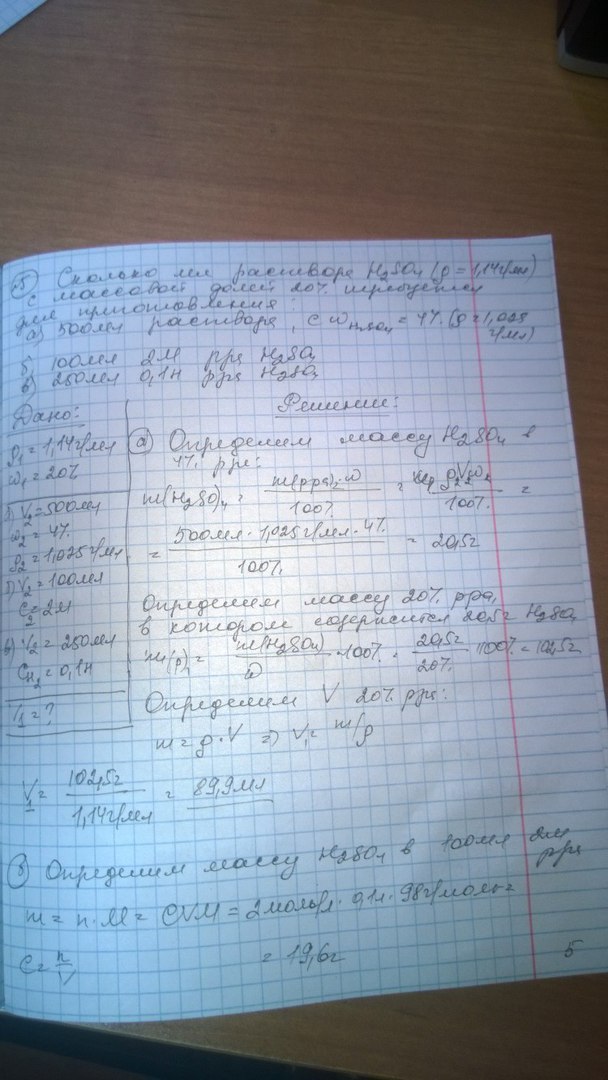 5 Сколько мл раствора H2SO4 (ρ = 1,14г/мл)
с массовой долей 20% требуется
для приготовления:
а) 500мл раствора, с ωH2SO4 = 4% (ρ=1,025
г/мл)
б) 100мл 2М рра H2SO4
в) 250мл 0,1н рра H2SO4
Дано:
ρ1 = 1,14г/мл
ω1 = 20%
а) V2 = 500мл
ω2 = 4%
ρ2 = 1,025г/мл
б) V2 = 100мл
C2 = 2М
в) V2 = 250мл
CH2 = 0,1н
V1 = ?
Решение:
а) Определим массу H2SO4 в
4% рре:
m(H2SO4) = m(рра)·ω / 100% = ρ2V2ω2 / 100% =
= 500мл · 1,025г/мл · 4% / 100% = 20,5г
Определим массу 20% рра,
в котором содержится 20,5г H2SO4
m(р) = m(H2SO4) / ω · 100% = 20,5г / 20% · 100% = 102,5г
Определим V 20% рра:
m = ρ·V => V1 = m/ρ
V1 = 102,5г / 1,14г/мл = 89,9мл
б) Определим массу H2SO4 в 100мл 2М
рра
m = n·M = CVM = 2моль/л · 0,1л · 98г/моль =
C = n/V = 19,6г
5